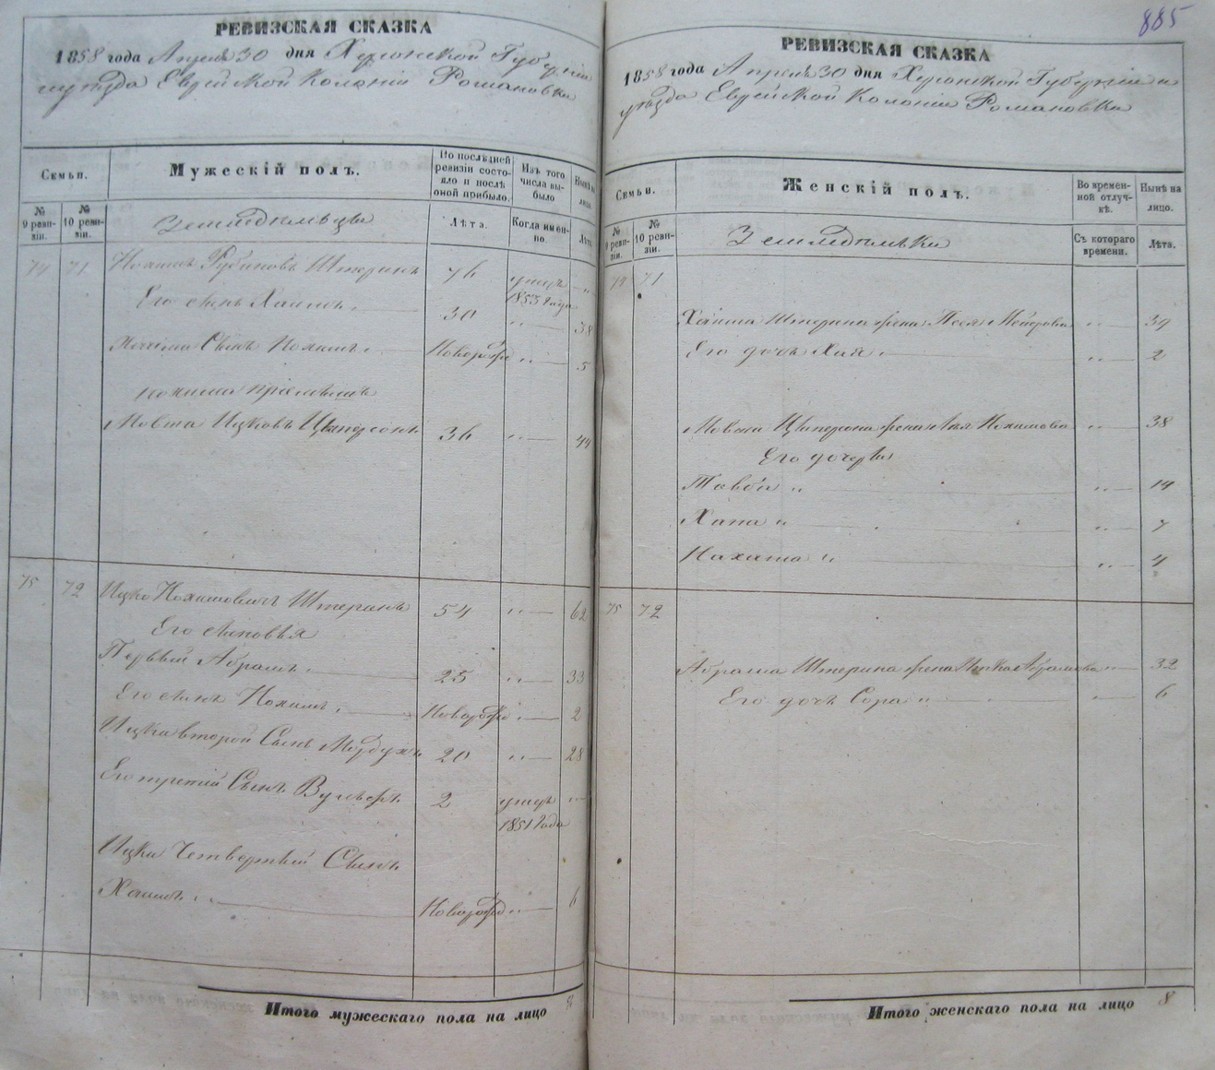 РЕВИЗСКАЯ СКАЗКА
1858 года Апреля 30 дня Херсонской Губерніи
и уѣзда Еврейской Колоніи Романовки
Семьи.
Мужескій полъ.
По послѣдней ревизіи состояло и послѣ оной прибыло.
Изъ того числа выбыло
№ 9 ревизіи.
№ 10 ревизіи.
Земледѣльцы
Лѣта.
Когда именно.
74 71
Рубиновъ Штеринъ 76 1853 года
Его сынъ Хаимъ 30 38
Сынъ Новорож 5
Мовша Ицковъ 36 44
75 72
Ицко Нохимовичъ Штеринъ 54 62
Его сыновья
Первый Абрамъ 25 33
Его сынъ Нохимъ Новорож 2
Ицки второй Сынъ Мордухъ 20 28
Его третій Сынъ Вульфъ 2 1851 года
Ицки Четвертый Сынъ
Хаимъ Новорож 6
Итого мужескаго пола на лицо
885
РЕВИЗСКАЯ СКАЗКА
1858 года Апреля 30 дня Херсонской Губерніи и
уѣзда Еврейской Колоніи Романовки
Семьи.
Женскій полъ.
Во временной отлучкѣ.
Нынѣ на лицо.
№ 9 ревизіи.
№ 10 ревизіи.
Земледѣлки
Съ котораго времени.
Лѣта.
71
Хаима Штерина жена Песя Мейерова 39
Его дочь Хая 2
Мовши жена Лея Нохимова 38
Его дочери
14
Хана 7
4
75 72
Абрама Штерина жена 32
Его дочь Сора 6
Итого женскаго пола на лицо 8